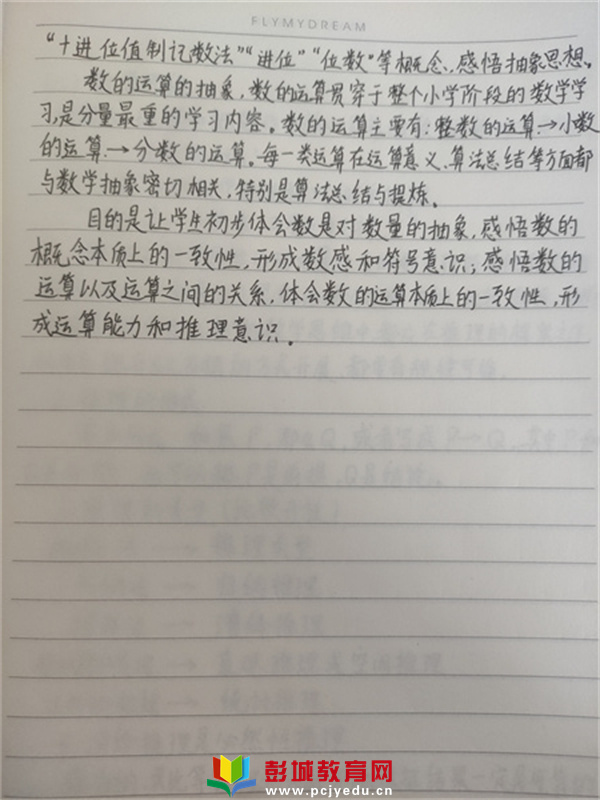 FLYMYDREAM
“十进位值制记数法”“进位”“位数”等概念,感悟抽象思想。
数的运算的抽象,数的运算贯穿于整个小学阶段的数学学
习,是分量最重的学习内容。数的运算主要有:整数的运算→小数
的运算→分数的运算。每一类运算在运算意义、算法总结等方面都
与数学抽象密切相关,特别是算法总结与提炼。
目的是让学生初步体会数是对数量的抽象,感悟数的
概念本质上的一致性,形成数感和符号意识;感悟数的
运算以及运算之间的关系,体会数的运算本质上的一致性,形
成运算能力和推理意识。
彭城教育网
www.pcjyedu.cn